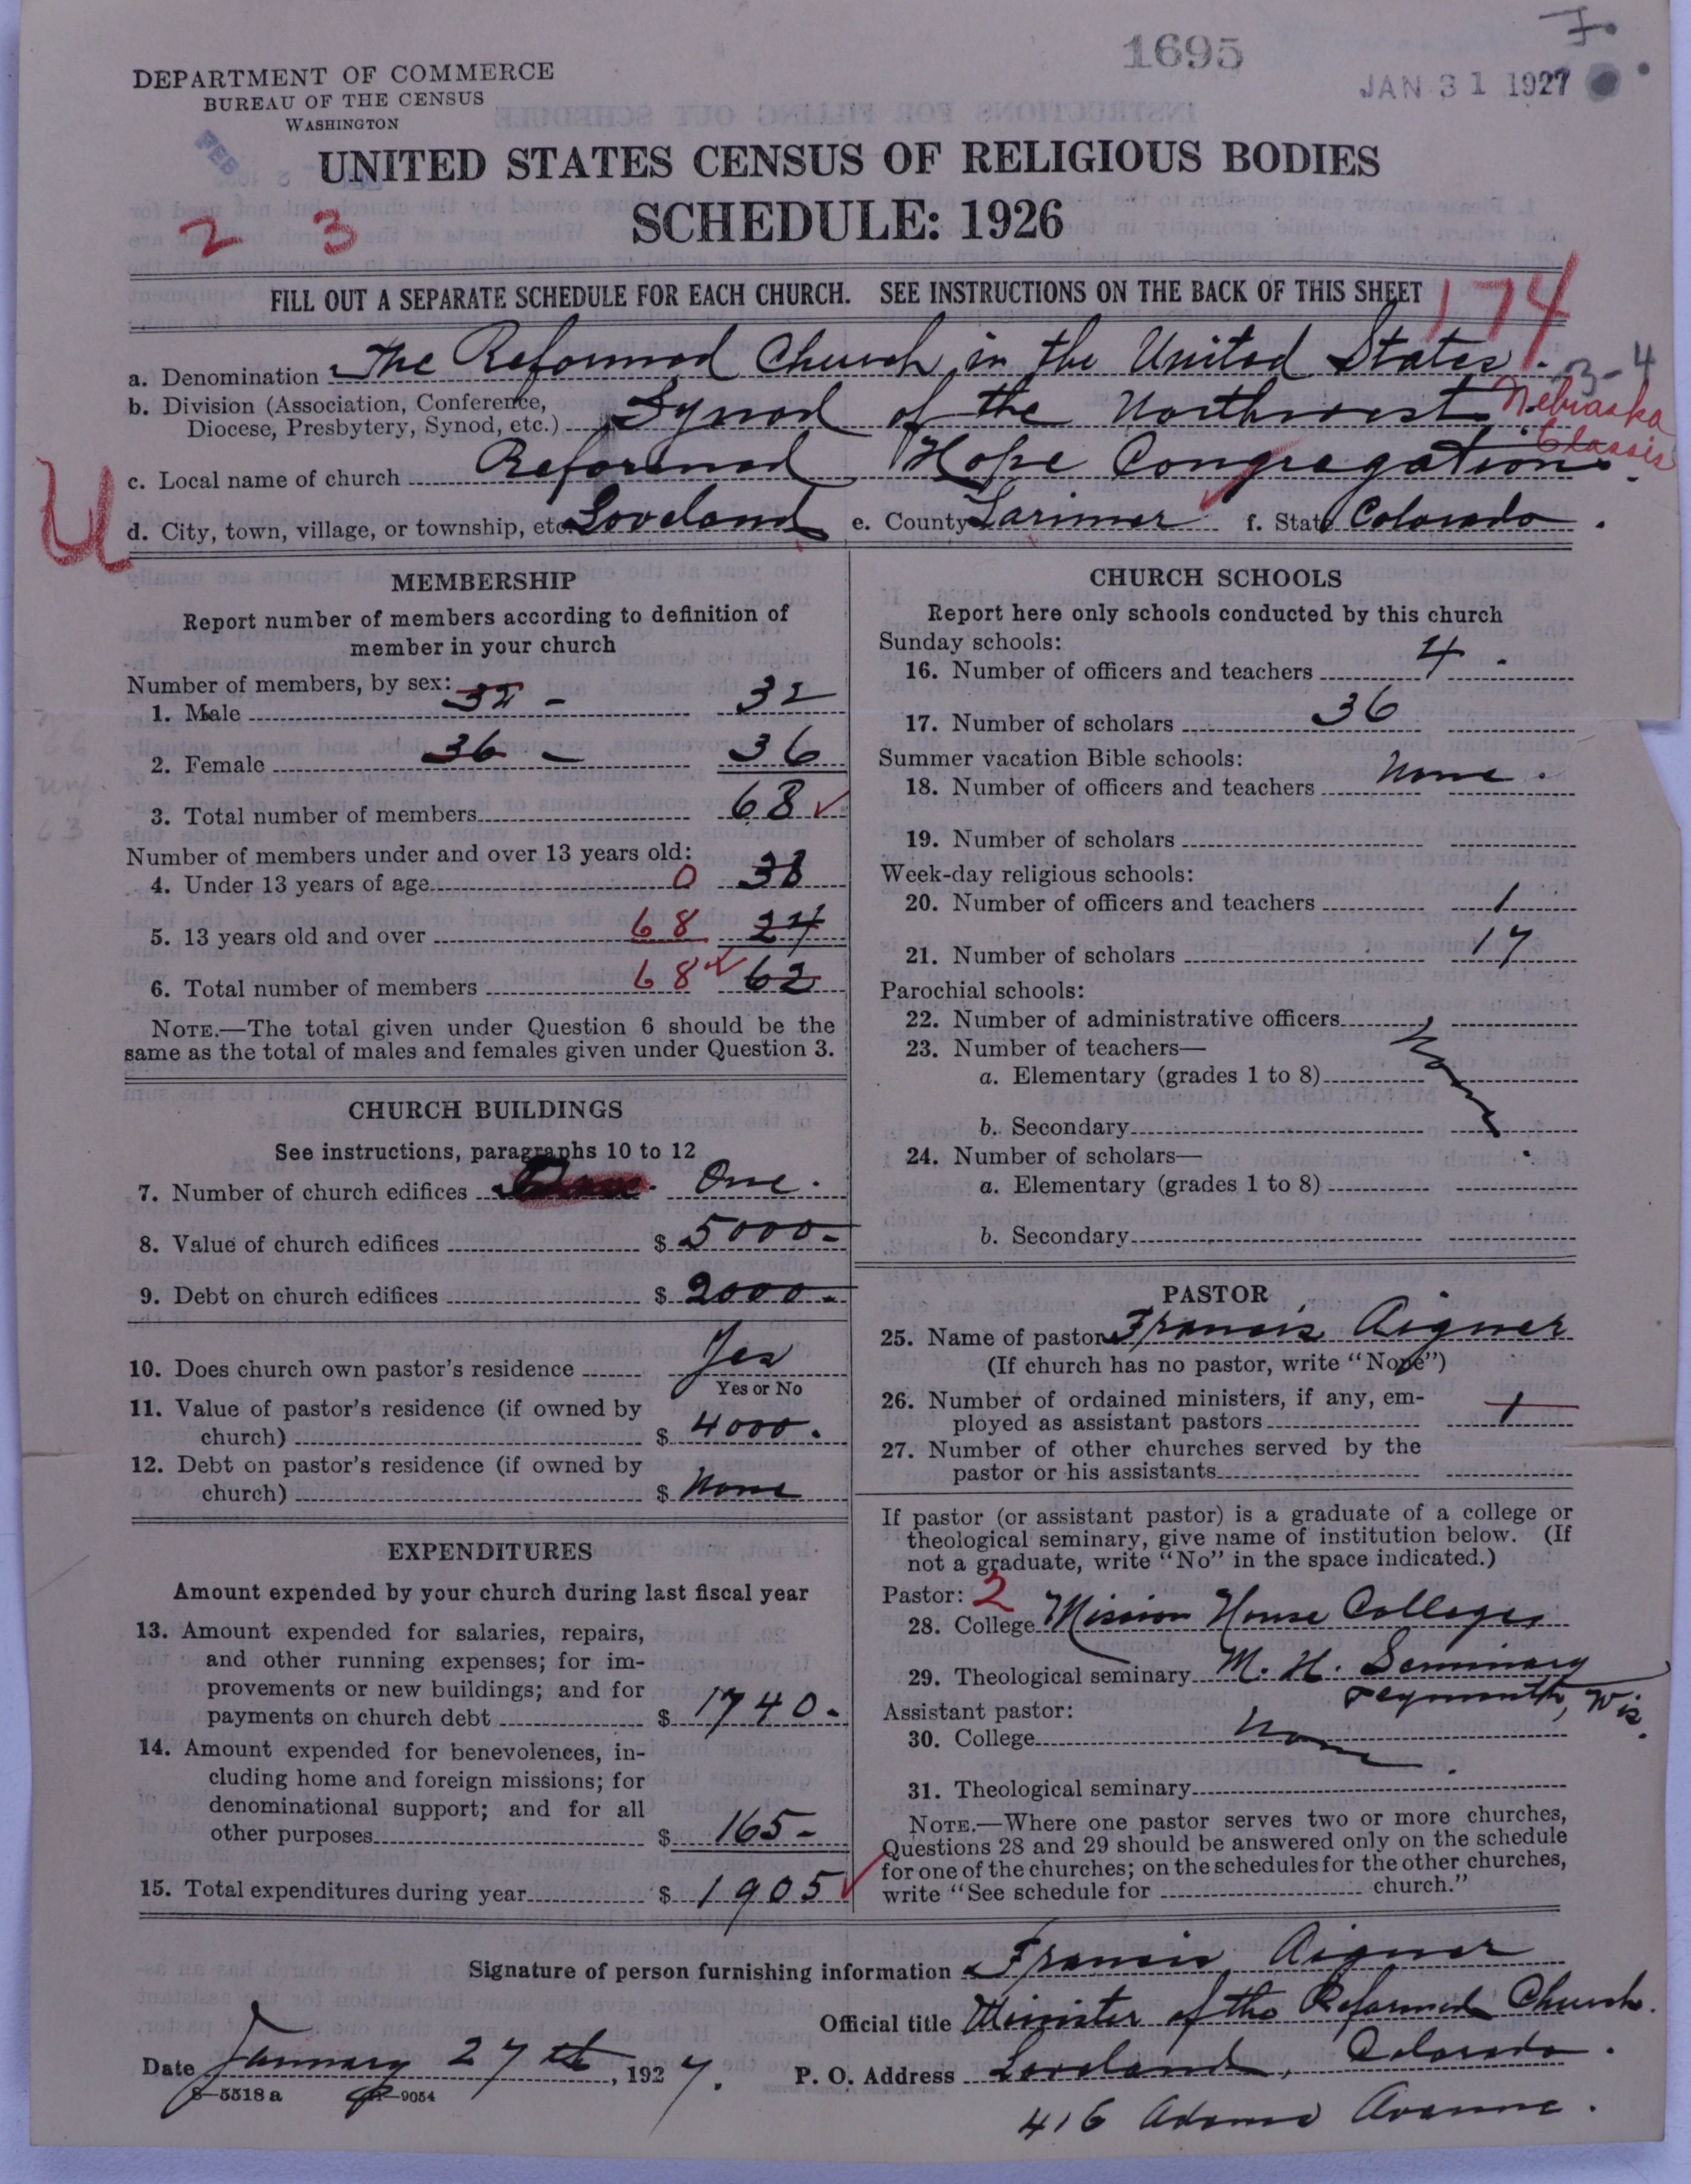 1695
F.
JAN 31 1927
DEPARTMENT OF COMMERCE
BUREAU OF THE CENSUS
WASHINGTON
FEB
UNITED STATES CENSUS OF RELIGIOUS BODIES
SCHEDULE: 1926
2 3
FILL OUT A SEPARATE SCHEDULE FOR EACH CHURCH. SEE INSTRUCTIONS ON THE BACK OF THIS SHEET
174
a. Denomination The Reformed Church in the United States.
3-4
b. Division (Association, Conference,
Diocese, Presbytery, Synod, etc.) Synod of the Northwest. Nebraska
Classis
c. Local name of church Reformed Hope Congregation.
U
d. City, town, village, or township, etc. Loveland e. County Larimer f. State Colorado.
MEMBERSHIP
Report number of members according to definition of
member in your church
Number of members, by sex:
1. Male 32 - 32
2. Female 36 - 36
3. Total number of members 68
Number of members under and over 13 years old:
4. Under 13 years of age 0 38
5. 13 years old and over 68 24
6. Total number of members 68 62
NOTE.—The total given under Question 6 should be the
same as the total of males and females given under Question 3.
CHURCH BUILDINGS
See instructions, paragraphs 10 to 12
7. Number of church edifices One.
8. Value of church edifices $ 5000-
9. Debt on church edifices $ 2000-
10. Does church own pastor's residence Yes
Yes or No
11. Value of pastor's residence (if owned by
church) $ 4000.
12. Debt on pastor's residence (if owned by
church) $ None
EXPENDITURES
Amount expended by your church during last fiscal year
13. Amount expended for salaries, repairs,
and other running expenses; for im-
provements or new buildings; and for
payments on church debt $ 1740-
14. Amount expended for benevolences, in-
cluding home and foreign missions; for
denominational support; and for all
other purposes $ 165-
15. Total expenditures during year $ 1905
CHURCH SCHOOLS
Report here only schools conducted by this church
Sunday schools:
16. Number of officers and teachers 4.
17. Number of scholars 36
Summer vacation Bible schools:
18. Number of officers and teachers None.
19. Number of scholars
Week-day religious schools:
20. Number of officers and teachers 1
21. Number of scholars 17
Parochial schools:
22. Number of administrative officers
23. Number of teachers— None
a. Elementary (grades 1 to 8)
b. Secondary
24. Number of scholars—
a. Elementary (grades 1 to 8)
b. Secondary
PASTOR
25. Name of pastor Francis Aigner
(If church has no pastor, write "None")
26. Number of ordained ministers, if any, em-
ployed as assistant pastors 1
27. Number of other churches served by the
pastor or his assistants
If pastor (or assistant pastor) is a graduate of a college or
theological seminary, give name of institution below. (If
not a graduate, write "No" in the space indicated.)
Pastor: 2
28. College Mission House College,
29. Theological seminary M. H. Seminary
Plymouth, Wis.
Assistant pastor:
30. College None.
31. Theological seminary
NOTE.—Where one pastor serves two or more churches,
Questions 28 and 29 should be answered only on the schedule
for one of the churches; on the schedules for the other churches,
write "See schedule for church."
Signature of person furnishing information Francis Aigner
Official title Minister of the Reformed Church.
Date January 27th, 1927. P. O. Address Loveland, Colorado.
8-5518 a
416 Adams Avenue.